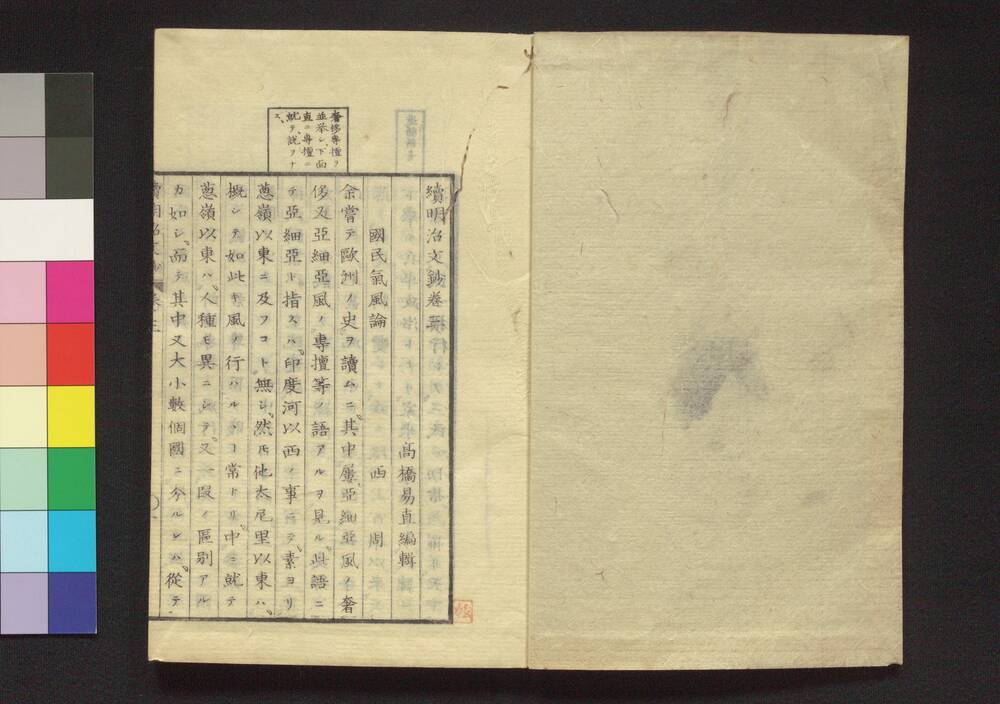 續明治文鈔卷三
高橋易直編輯
國民氣風論
西周
余嘗テ歐洲ノ史ヲ讀ムニ其中屢亞細亞風ノ奢
侈又亞細亞風ノ專擅等ノ語アルヲ見ル此語ニ
テ亞細亞ト指スハ印度河以西ノ事ニテ素ヨリ
蔥嶺以東ニ及フコト無シ然𪜈他太尼里以東ハ
概シテ如此キ風ノ行ハルヽヿ常トリ中ニ就テ
蔥嶺以東ハ人種モ異ニシテ又一段ノ區別アル
カ如シ而テ其中又大小數個國ニ分ルレハ從テ
奢侈專擅ヲ
並擧シ下面
直ニ專擅ニ
就テ說ヲナ
ス